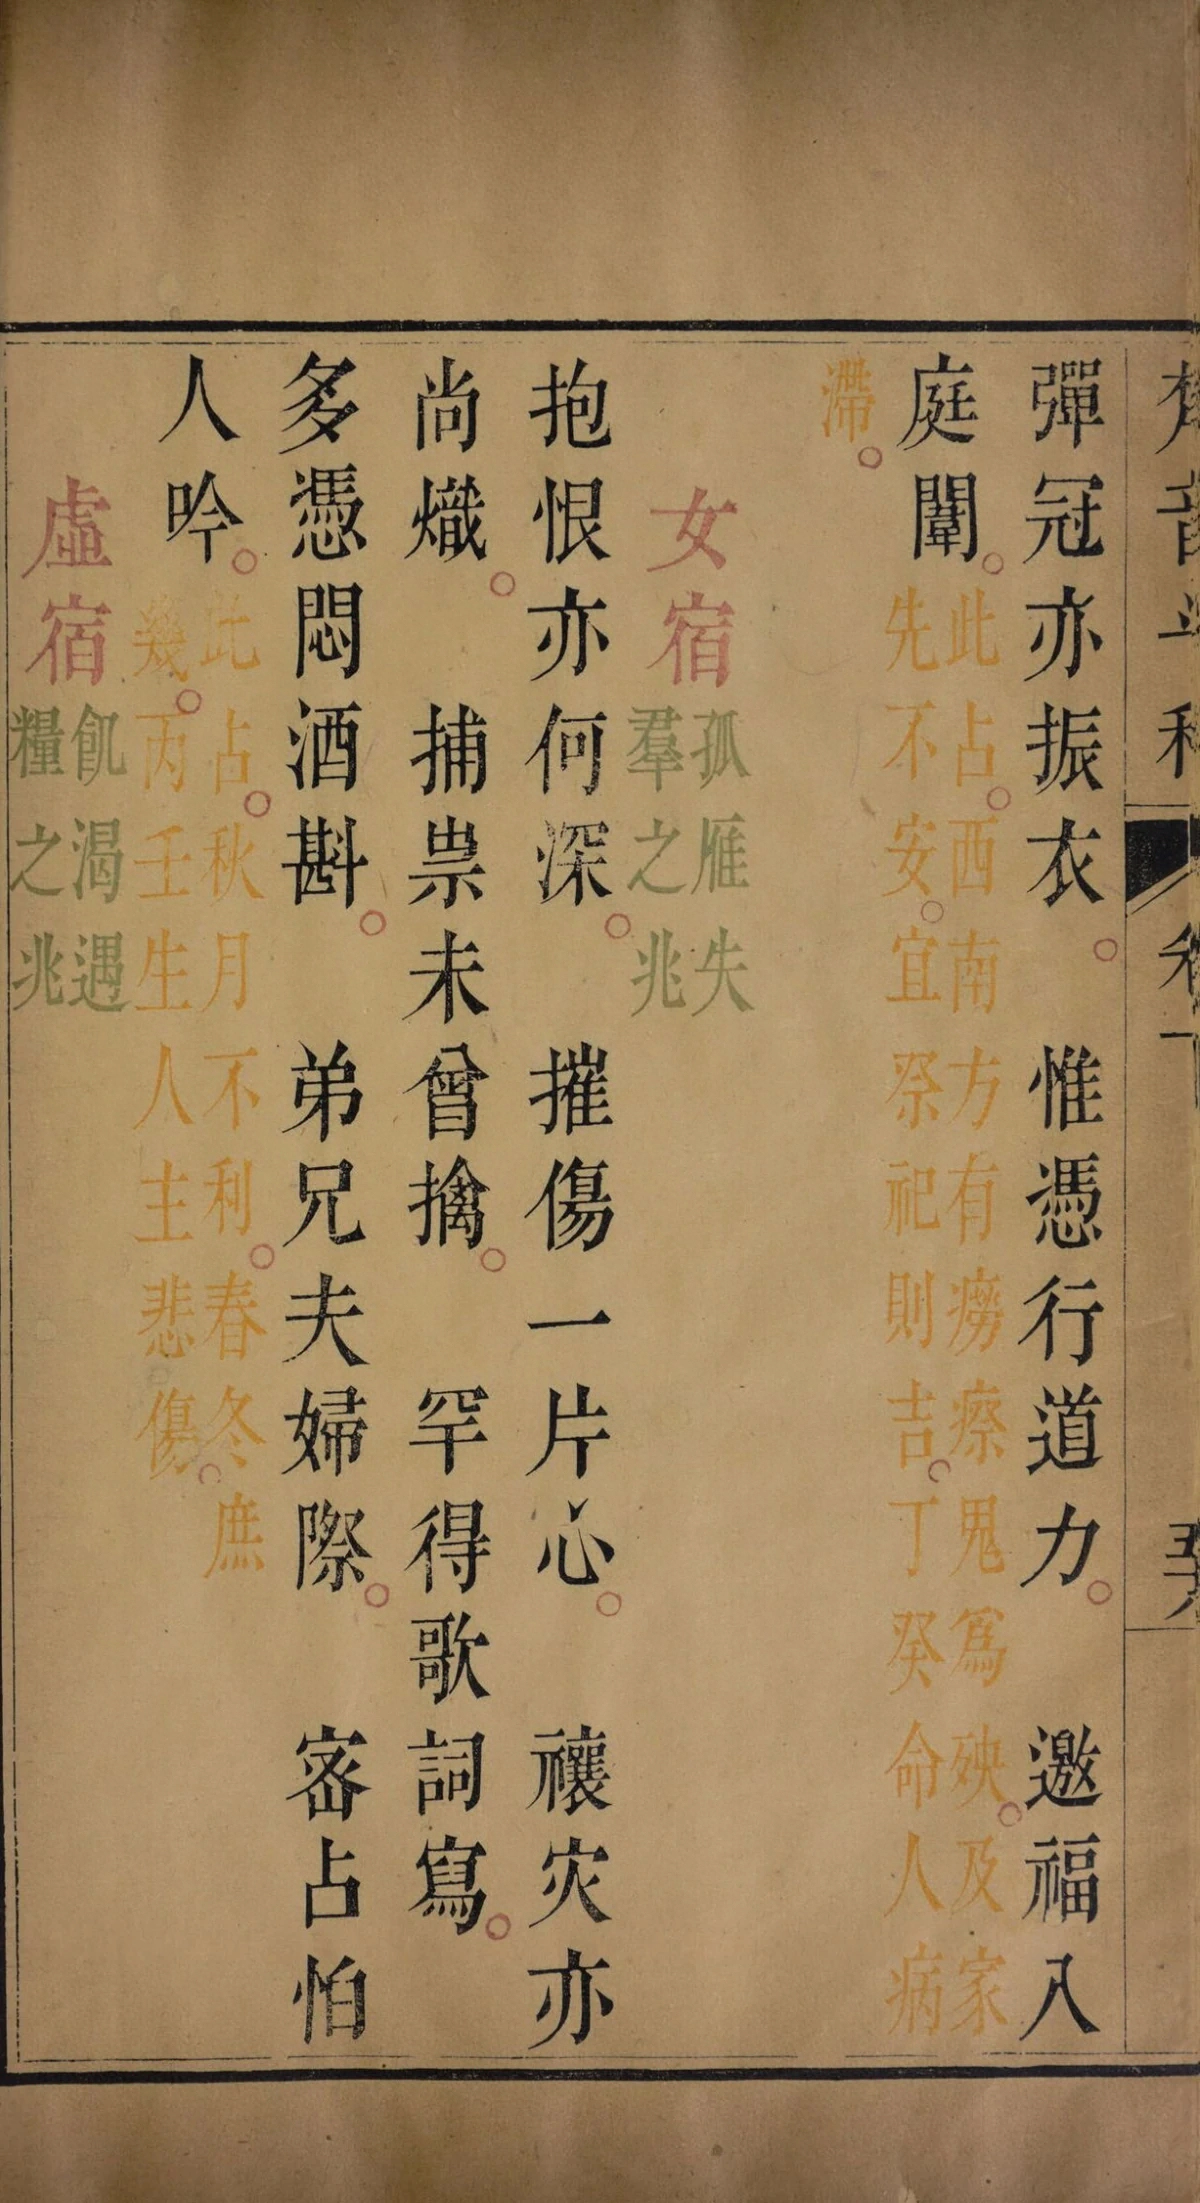 彈冠亦振衣。惟憑行道力。邀福入
庭闈。此占。西南方有癆瘵鬼爲殃。及家
先不安。宜祭祀則吉。丁癸命人病
滯。
女宿孤雁失
羣之兆
抱恨亦何深。摧傷一片心。禳灾亦
尚熾。捕祟未曾擒。罕得歌詞寫。
多憑悶酒斟。弟兄夫婦際。宻占怕
人吟。此占。秋月不利。春冬庶
幾。丙壬生人主悲傷。
虛宿飢渴遇
糧之兆